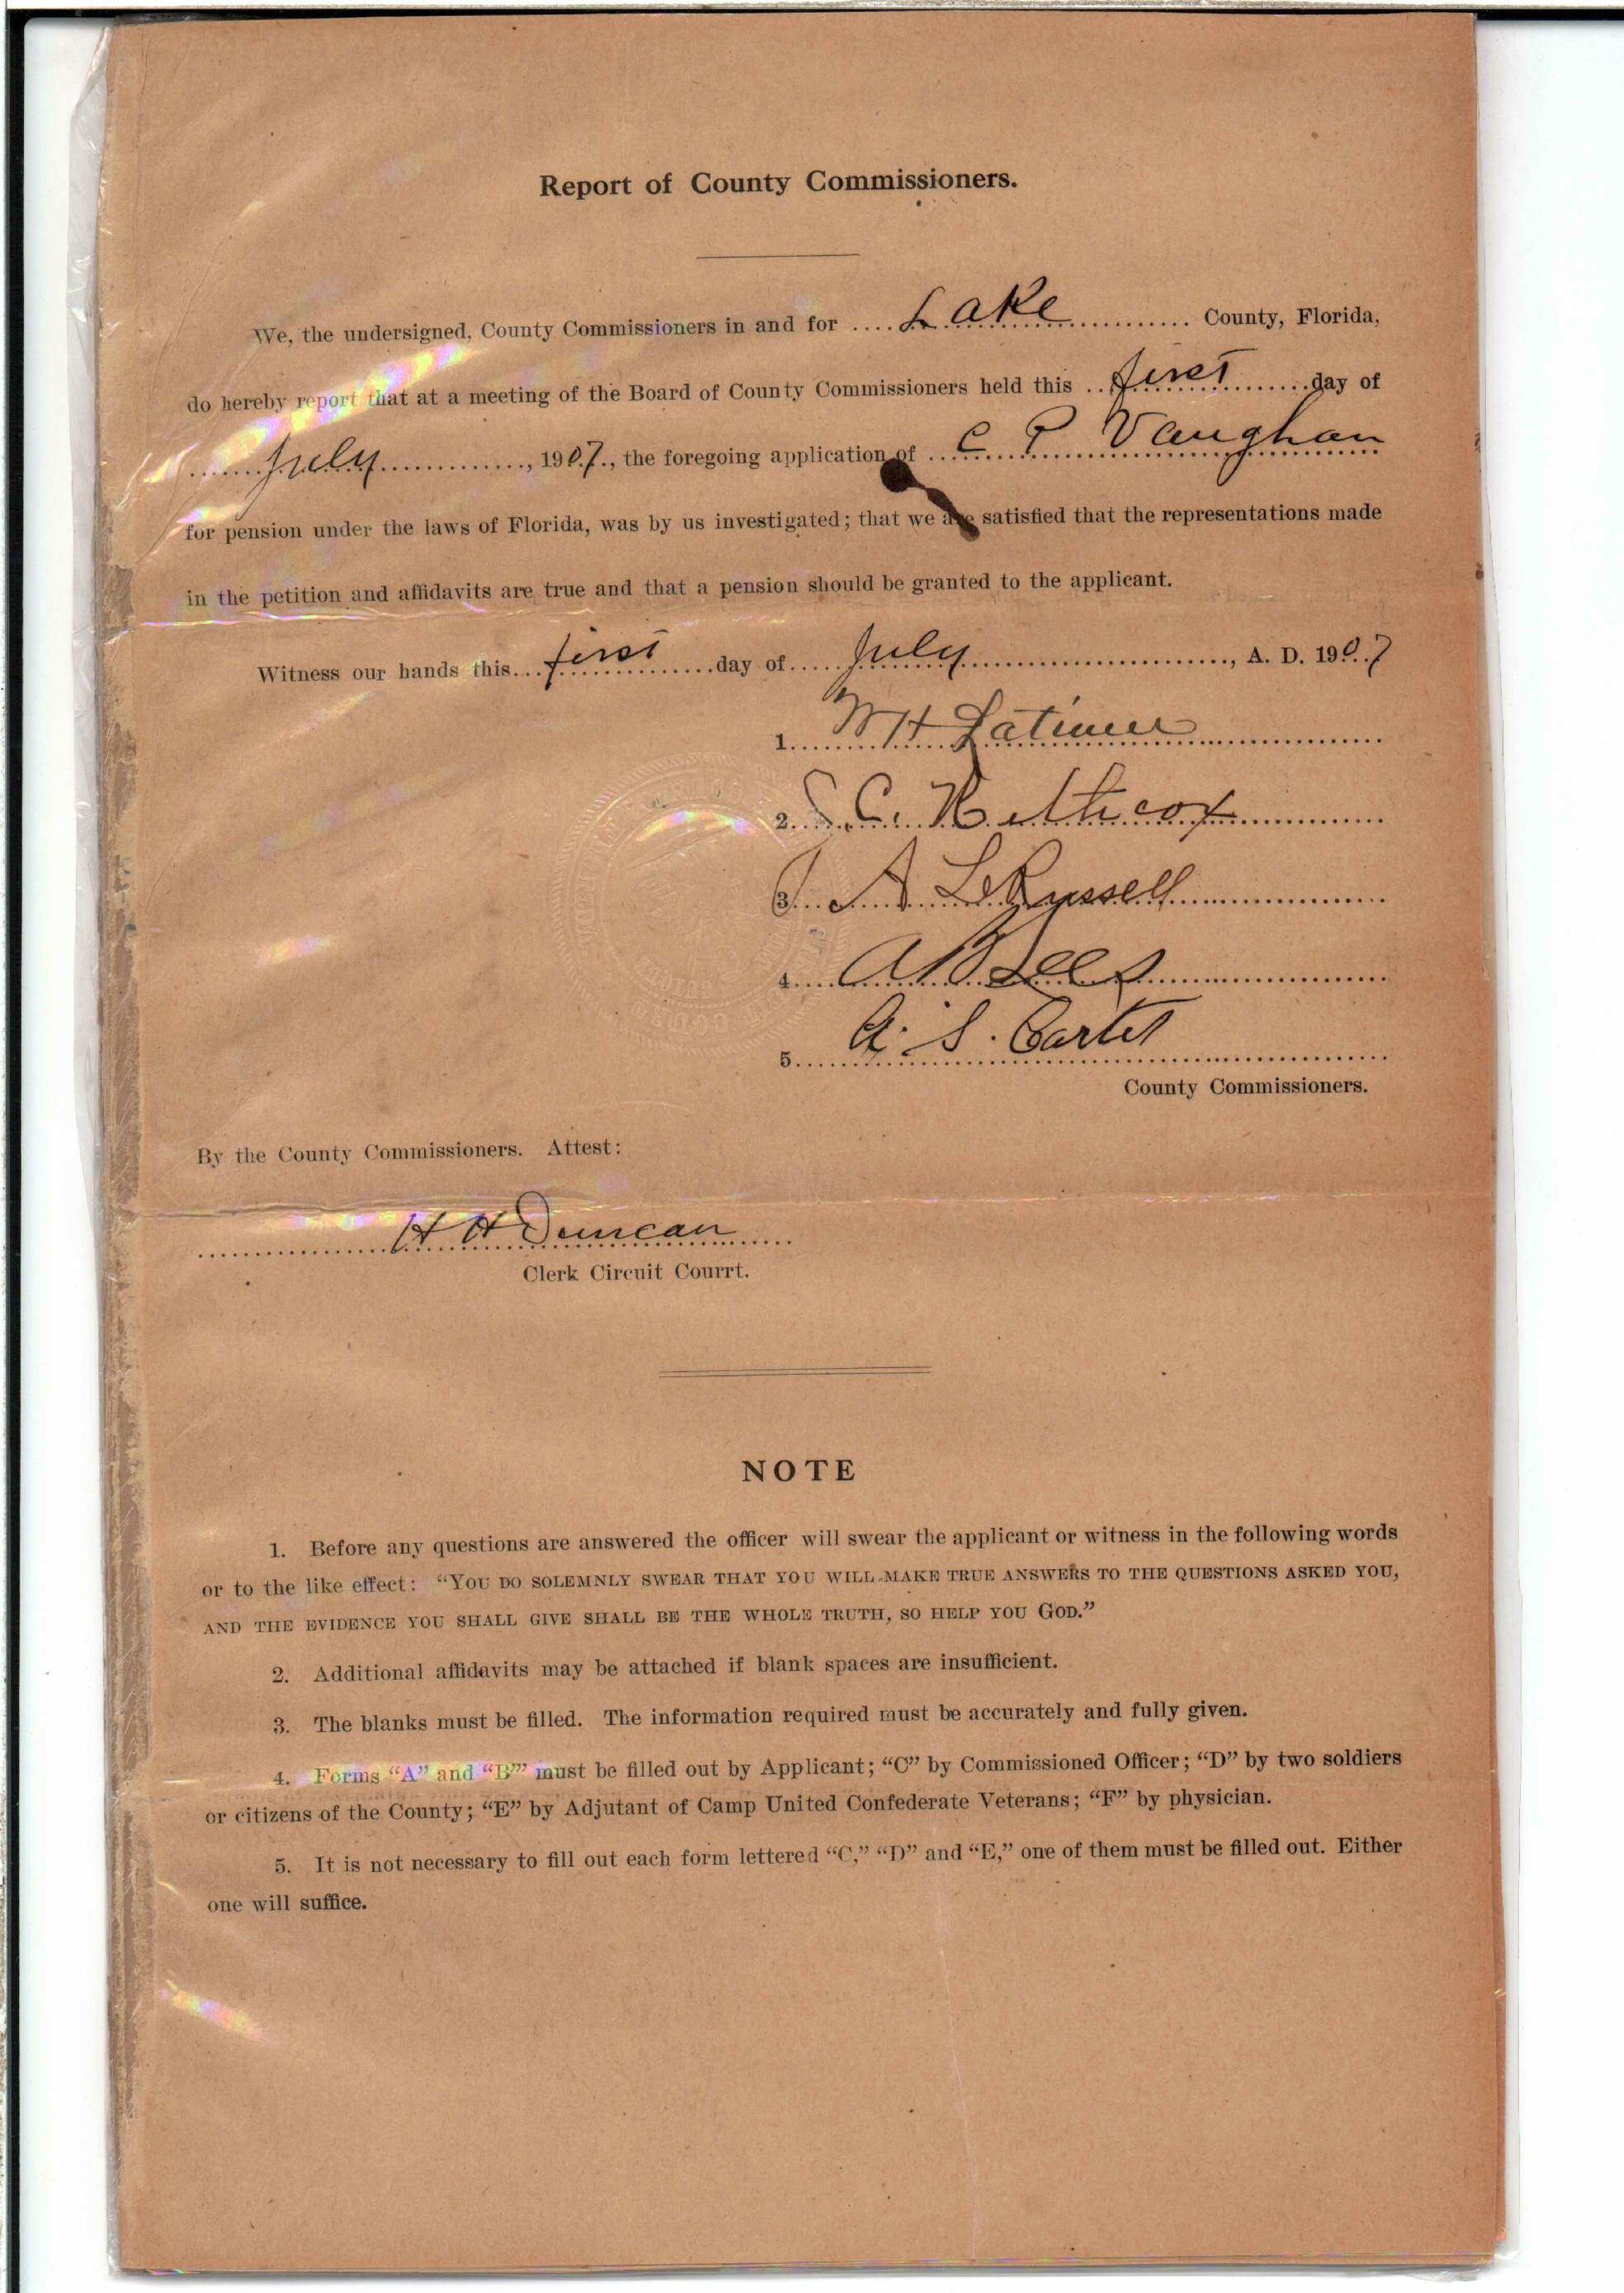 Report of County Commissioners.
We, the undersigned, County Commissioners in and for .... Lake .... County, Florida,
do hereby report that at a meeting of the Board of County Commissioners held this .. first .... day of
.... July ...., 1907., the foregoing application of ... C P Vaughan
for pension under the laws of Florida, was by us investigated; that we are satisfied that the representations made
in the petition and affidavits are true and that a pension should be granted to the applicant.
Witness our hands this... first .... day of .... July ...., A. D. 1907
1. H Latimer
2. C.
3. Russell
4. A
5. A. S. Carter
County Commissioners.
By the County Commissioners. Attest:
H H Duncan
Clerk Circuit Courrt.
NOTE
1. Before any questions are answered the officer will swear the applicant or witness in the following words
or to the like effect: “YOU DO SOLEMNLY SWEAR THAT YOU WILL MAKE TRUE ANSWERS TO THE QUESTIONS ASKED YOU,
AND THE EVIDENCE YOU SHALL GIVE SHALL BE THE WHOLE TRUTH, SO HELP YOU GOD.”
2. Additional affidavits may be attached if blank spaces are insufficient.
3. The blanks must be filled. The information required must be accurately and fully given.
4. Forms “A” and “B” must be filled out by Applicant; “C” by Commissioned Officer; “D” by two soldiers
or citizens of the County; “E” by Adjutant of Camp United Confederate Veterans; “F” by physician.
5. It is not necessary to fill out each form lettered “C,” “D” and “E,” one of them must be filled out. Either
one will suffice.